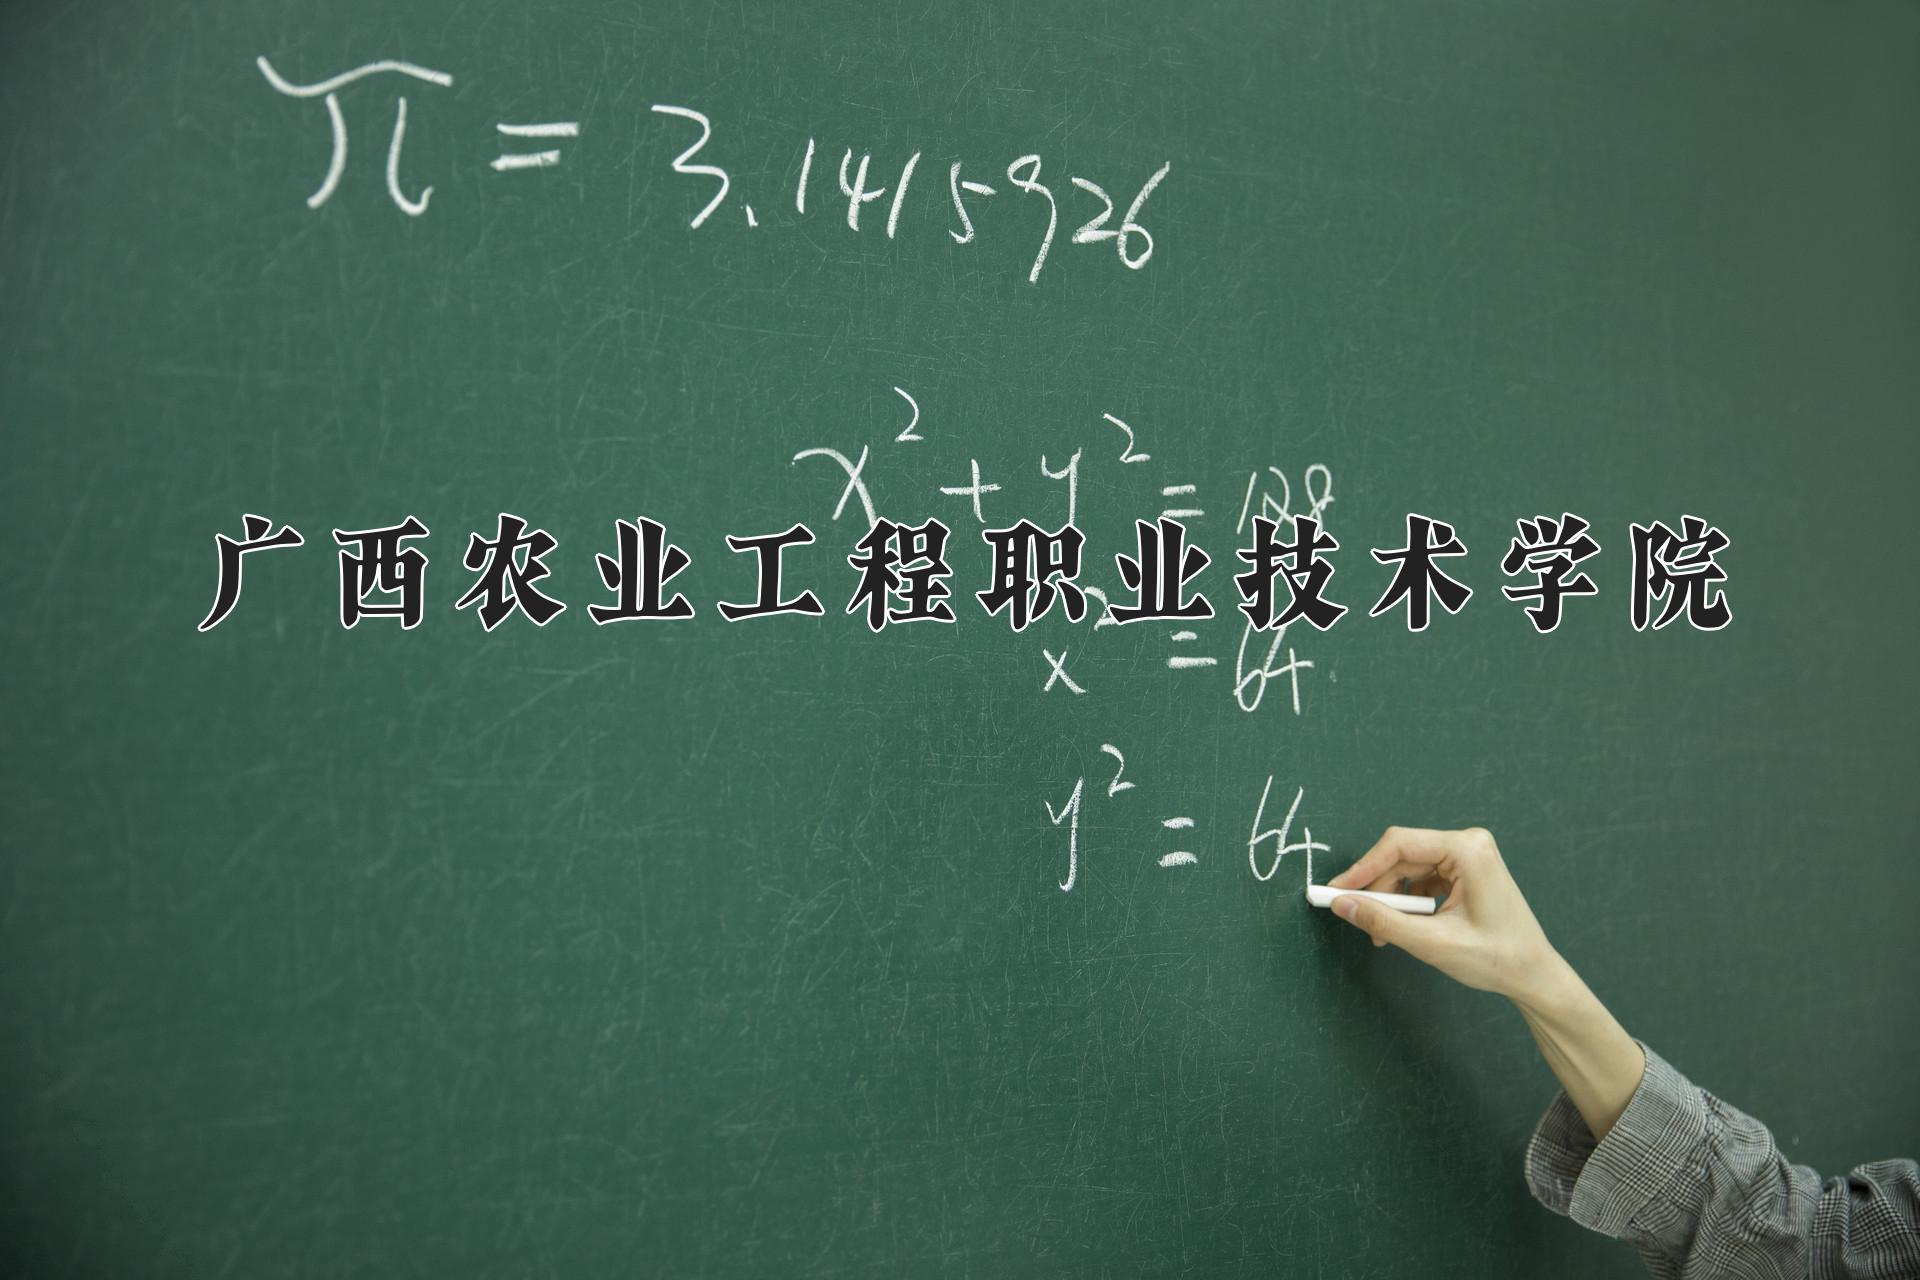 π = 3.1415926
x² + y² = 128
广西农业工程职业技术学院
x² = 64
y² = 64